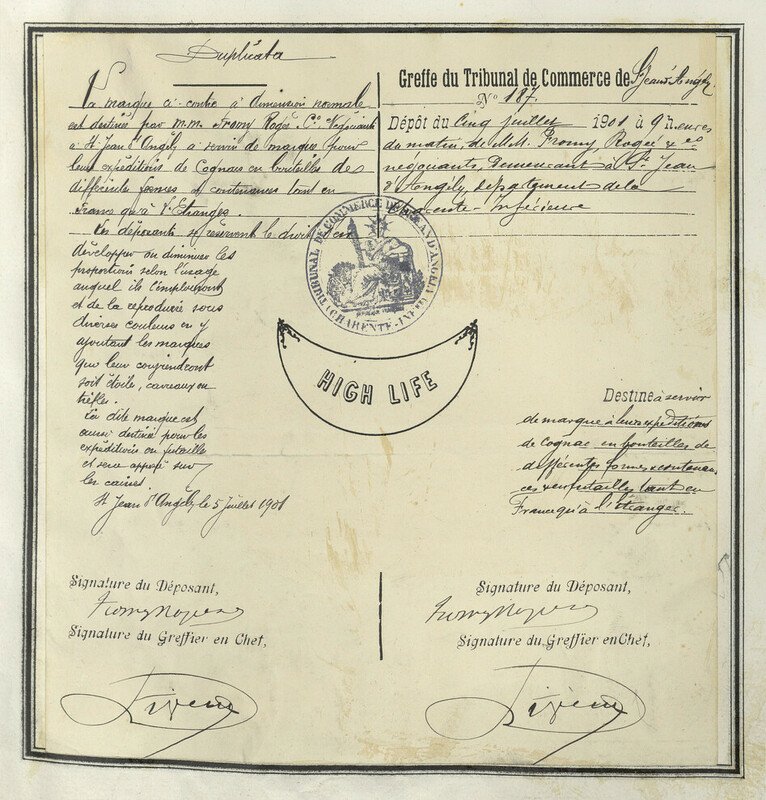 Duplicata
La marque ci-contre à dimension normale
est destinée par M.M. Fromy Rogée & Cie, Négociants
à St Jean d'Angély à servir de marque pour
leurs expéditions de Cognac en bouteilles de
différentes formes et contenances tant en
France qu'à l'Etranger.
Les déposants se réservent le droit d'en
développer ou diminuer les
proportions selon l'usage
auquel ils l'emploieront
et de la reproduire sous
diverses couleurs en y
ajoutant les marques
que leur conviendront
soit étoile, carreaux ou
trèfles.
La dite marque est
aussi destinée pour les
expéditions en futaille
et sera apposée sur
les caisses.
St Jean d'Angély, le 5 Juillet 1901
Signature du Déposant,
Fromy Rogée
Signature du Greffier en Chef,
Greffe du Tribunal de Commerce de St Jean d'Angély
No 187
Dépôt du Cinq juillet 1901 à 9 heures
du matin, de M.M. Fromy Rogée & Cie
négociants, Demeurant à St Jean
d'Angély, département de la
Charente-Inférieure
TRIBUNAL DE COMMERCE DE ST JEAN D'ANGELY
(CHARENTE-INFRE)
HIGH LIFE
Destiné à servir
de marque à leurs expéditions
de Cognac en bouteilles de
différentes formes & contenan-
ces & en futailles tant en
France qu'à l'étranger.
Signature du Déposant,
Fromy Rogée
Signature du Greffier en Chef,